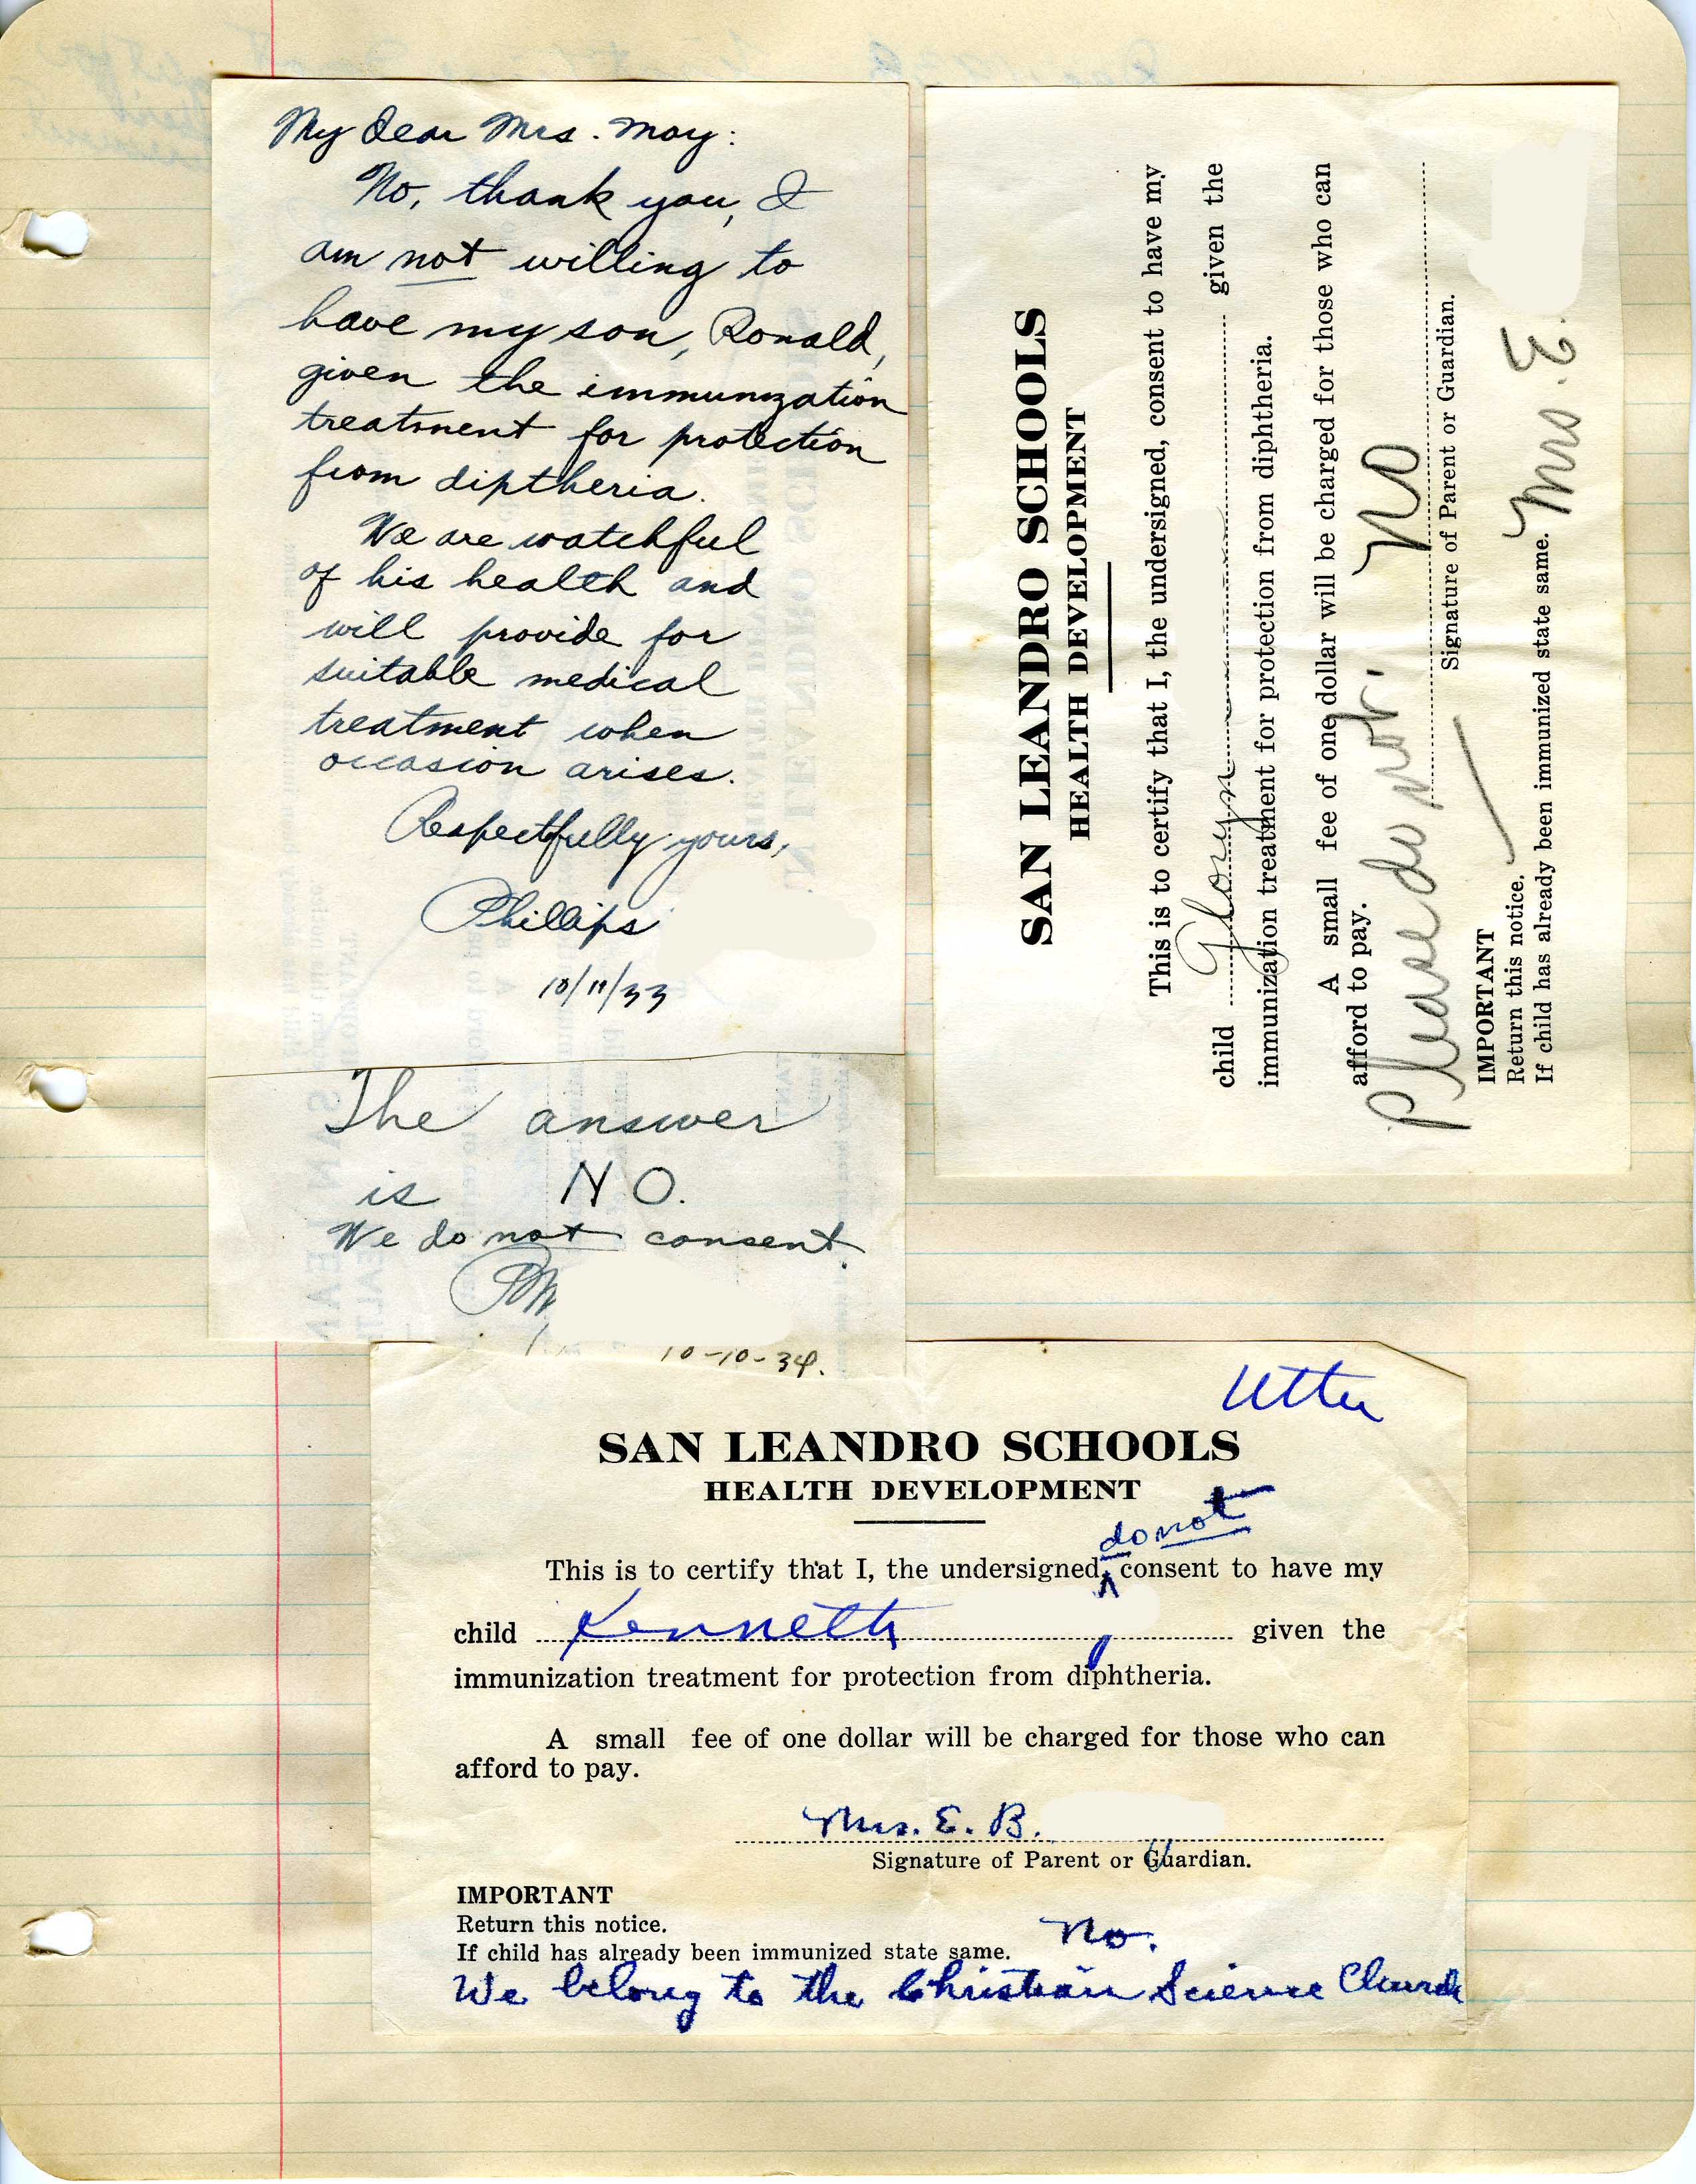 My dear Mrs. May:
No, thank you, I
am not willing to
have my son, Ronald,
given the immunization
treatment for protection
from diptheria.
We are watchful
of his health and
will provide for
suitable medical
treatment when
occasion arises.
Respectfully yours,
Phillips
10/11/33
The answer
is NO.
We do not consent.
10-10-34.
SAN LEANDRO SCHOOLS
HEALTH DEVELOPMENT
This is to certify that I, the undersigned, consent to have my
child Gloryn given the
immunization treatment for protection from diphtheria.
A small fee of one dollar will be charged for those who can
afford to pay.
Please do not. No
Signature of Parent or Guardian.
IMPORTANT
Return this notice.
If child has already been immunized state same. Mrs. 3.
Utter
SAN LEANDRO SCHOOLS
HEALTH DEVELOPMENT
do not
This is to certify that I, the undersigned, consent to have my
child Kenneth given the
immunization treatment for protection from diphtheria.
A small fee of one dollar will be charged for those who can
afford to pay.
Mrs. E. B.
Signature of Parent or Guardian.
IMPORTANT
Return this notice.
If child has already been immunized state same. No.
We belong to the Christian Science Church